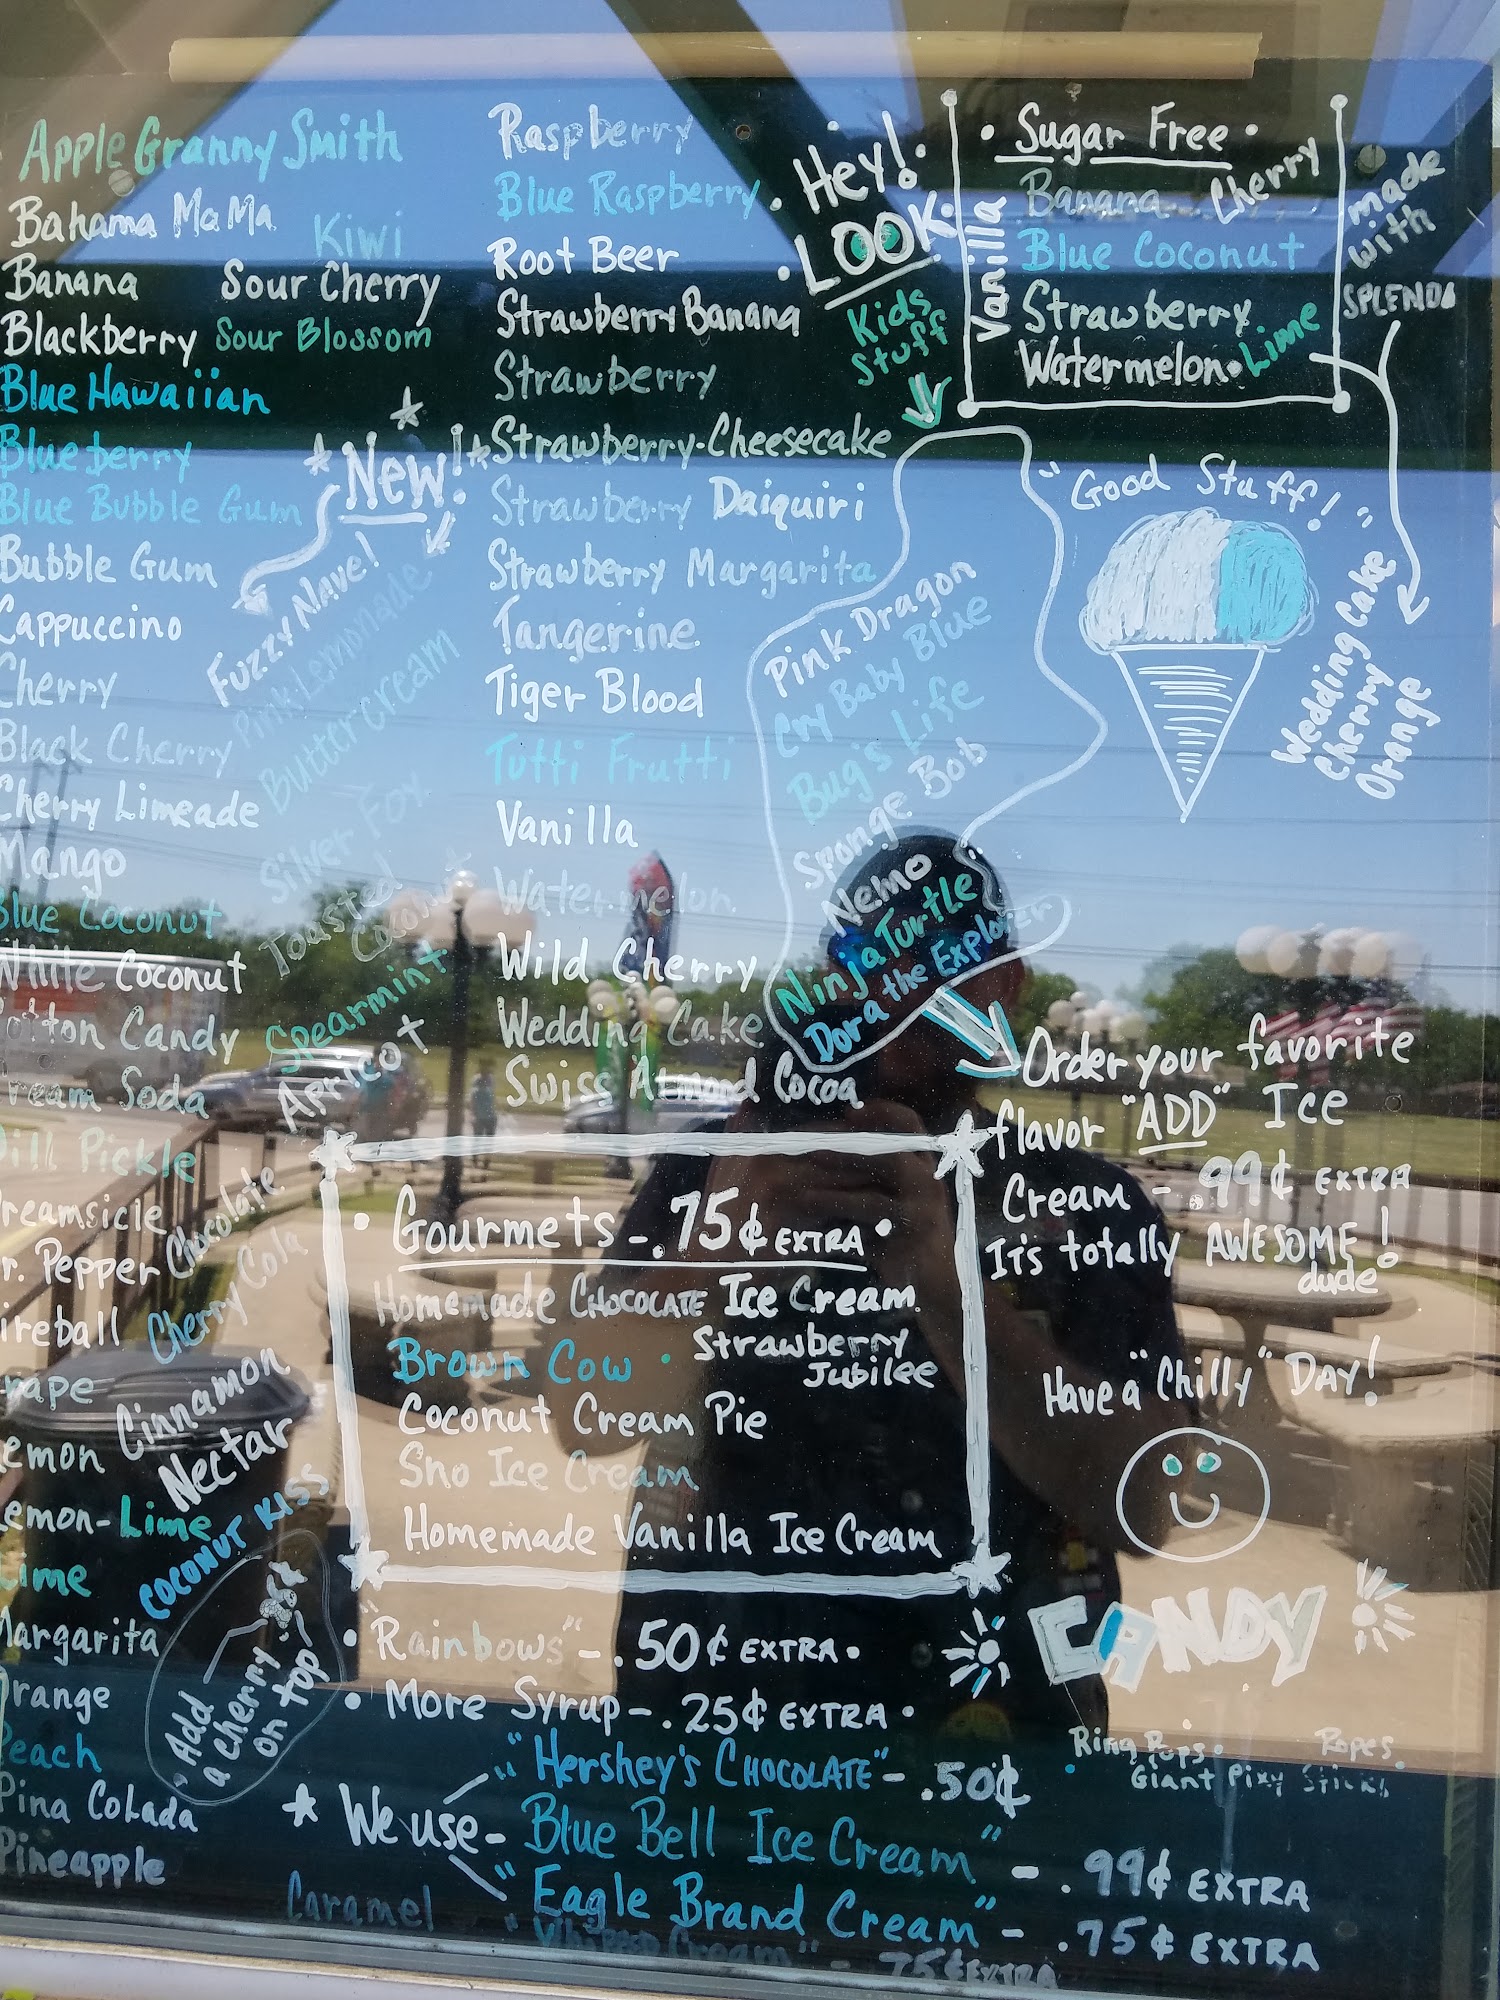 Apple Granny Smith
Bahama MaMa
Kiwi
Banana
Sour Cherry
Blackberry
Sour Blossom
Blue Hawaiian
Blueberry
Blue Bubble Gum
Bubble Gum
Cappuccino
Cherry
Black Cherry
Cherry Limeade
Mango
Blue Coconut
White Coconut
otton Candy
ream Soda
Dill Pickle
reamsicle
r. Pepper
ireball
rape
emon
emon-Lime
Lime
Margarita
Orange
Peach
Pina Colada
Pineapple
New!
Fuzzy Navel
Pink Lemonade
Buttercream
Silver Fox
Toasted
Coconut
Spearmint
Apricot
Chocolate
Cherry Cola
Cinnamon
Nectar
COCONUT KISS
Add
a cherry
on top
Caramel
Raspberry
Blue Raspberry
Root Beer
Strawberry Banana
Strawberry
Strawberry-Cheesecake
Strawberry Daiquiri
Strawberry Margarita
Tangerine
Tiger Blood
Tutti Frutti
Vanilla
Watermelon
Wild Cherry
Wedding Cake
Swiss Almond Cocoa
Hey!
LOOK
Kids
Stuff
Pink Dragon
Cry Baby Blue
Bug's Life
Sponge Bob
Nemo
Ninja Turtle
Dora the Explorer
• Sugar Free •
Vanilla
Banana
Cherry
Blue Coconut
Strawberry
Watermelon • Lime
made
with
SPLENDA
Wedding Cake
Cherry
Orange
"Good Stuff!"
Order your favorite
flavor "ADD" Ice
Cream - .99¢ EXTRA
It's totally AWESOME!
dude
Have a "Chilly" DAY!
• Gourmets - .75¢ EXTRA •
Homemade CHOCOLATE Ice Cream
Brown Cow • Strawberry
Jubilee
Coconut Cream Pie
Sno Ice Cream
Homemade Vanilla Ice Cream
• "Rainbows" - .50¢ EXTRA •
• More Syrup - .25¢ EXTRA •
CANDY
Ring Pops • Ropes •
• Giant Pixy Sticks
"Hershey's CHOCOLATE" - .50¢
We use - Blue Bell Ice Cream" - .99¢ EXTRA
"Eagle Brand Cream" - .75¢ EXTRA
"Whipped Cream" - .75¢ EXTRA